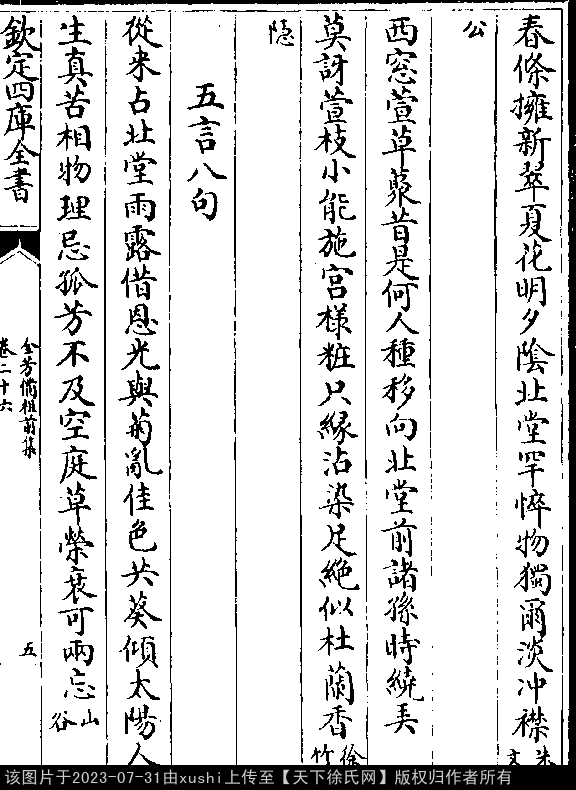 春條擁新翠夏花明夕陰北堂罕悴物獨爾淡冲襟朱文
公
西窓萱草藂昔是何人種移向北堂前諸孫時繞弄
莫訝萱枝小能施宫様粧只緣沾染足絶似杜蘭香徐竹
隐
五言八句
從来占北堂雨露借恩光與菊亂佳色共葵傾太陽人
生真苦相物理忌孤芳不及空庭草榮衰可兩忘山谷
欽定四庫全書
全芳備祖前集
卷二十六
五
该图片于2023-07-31由xushi上传至【天下徐氏网】版权归作者所有